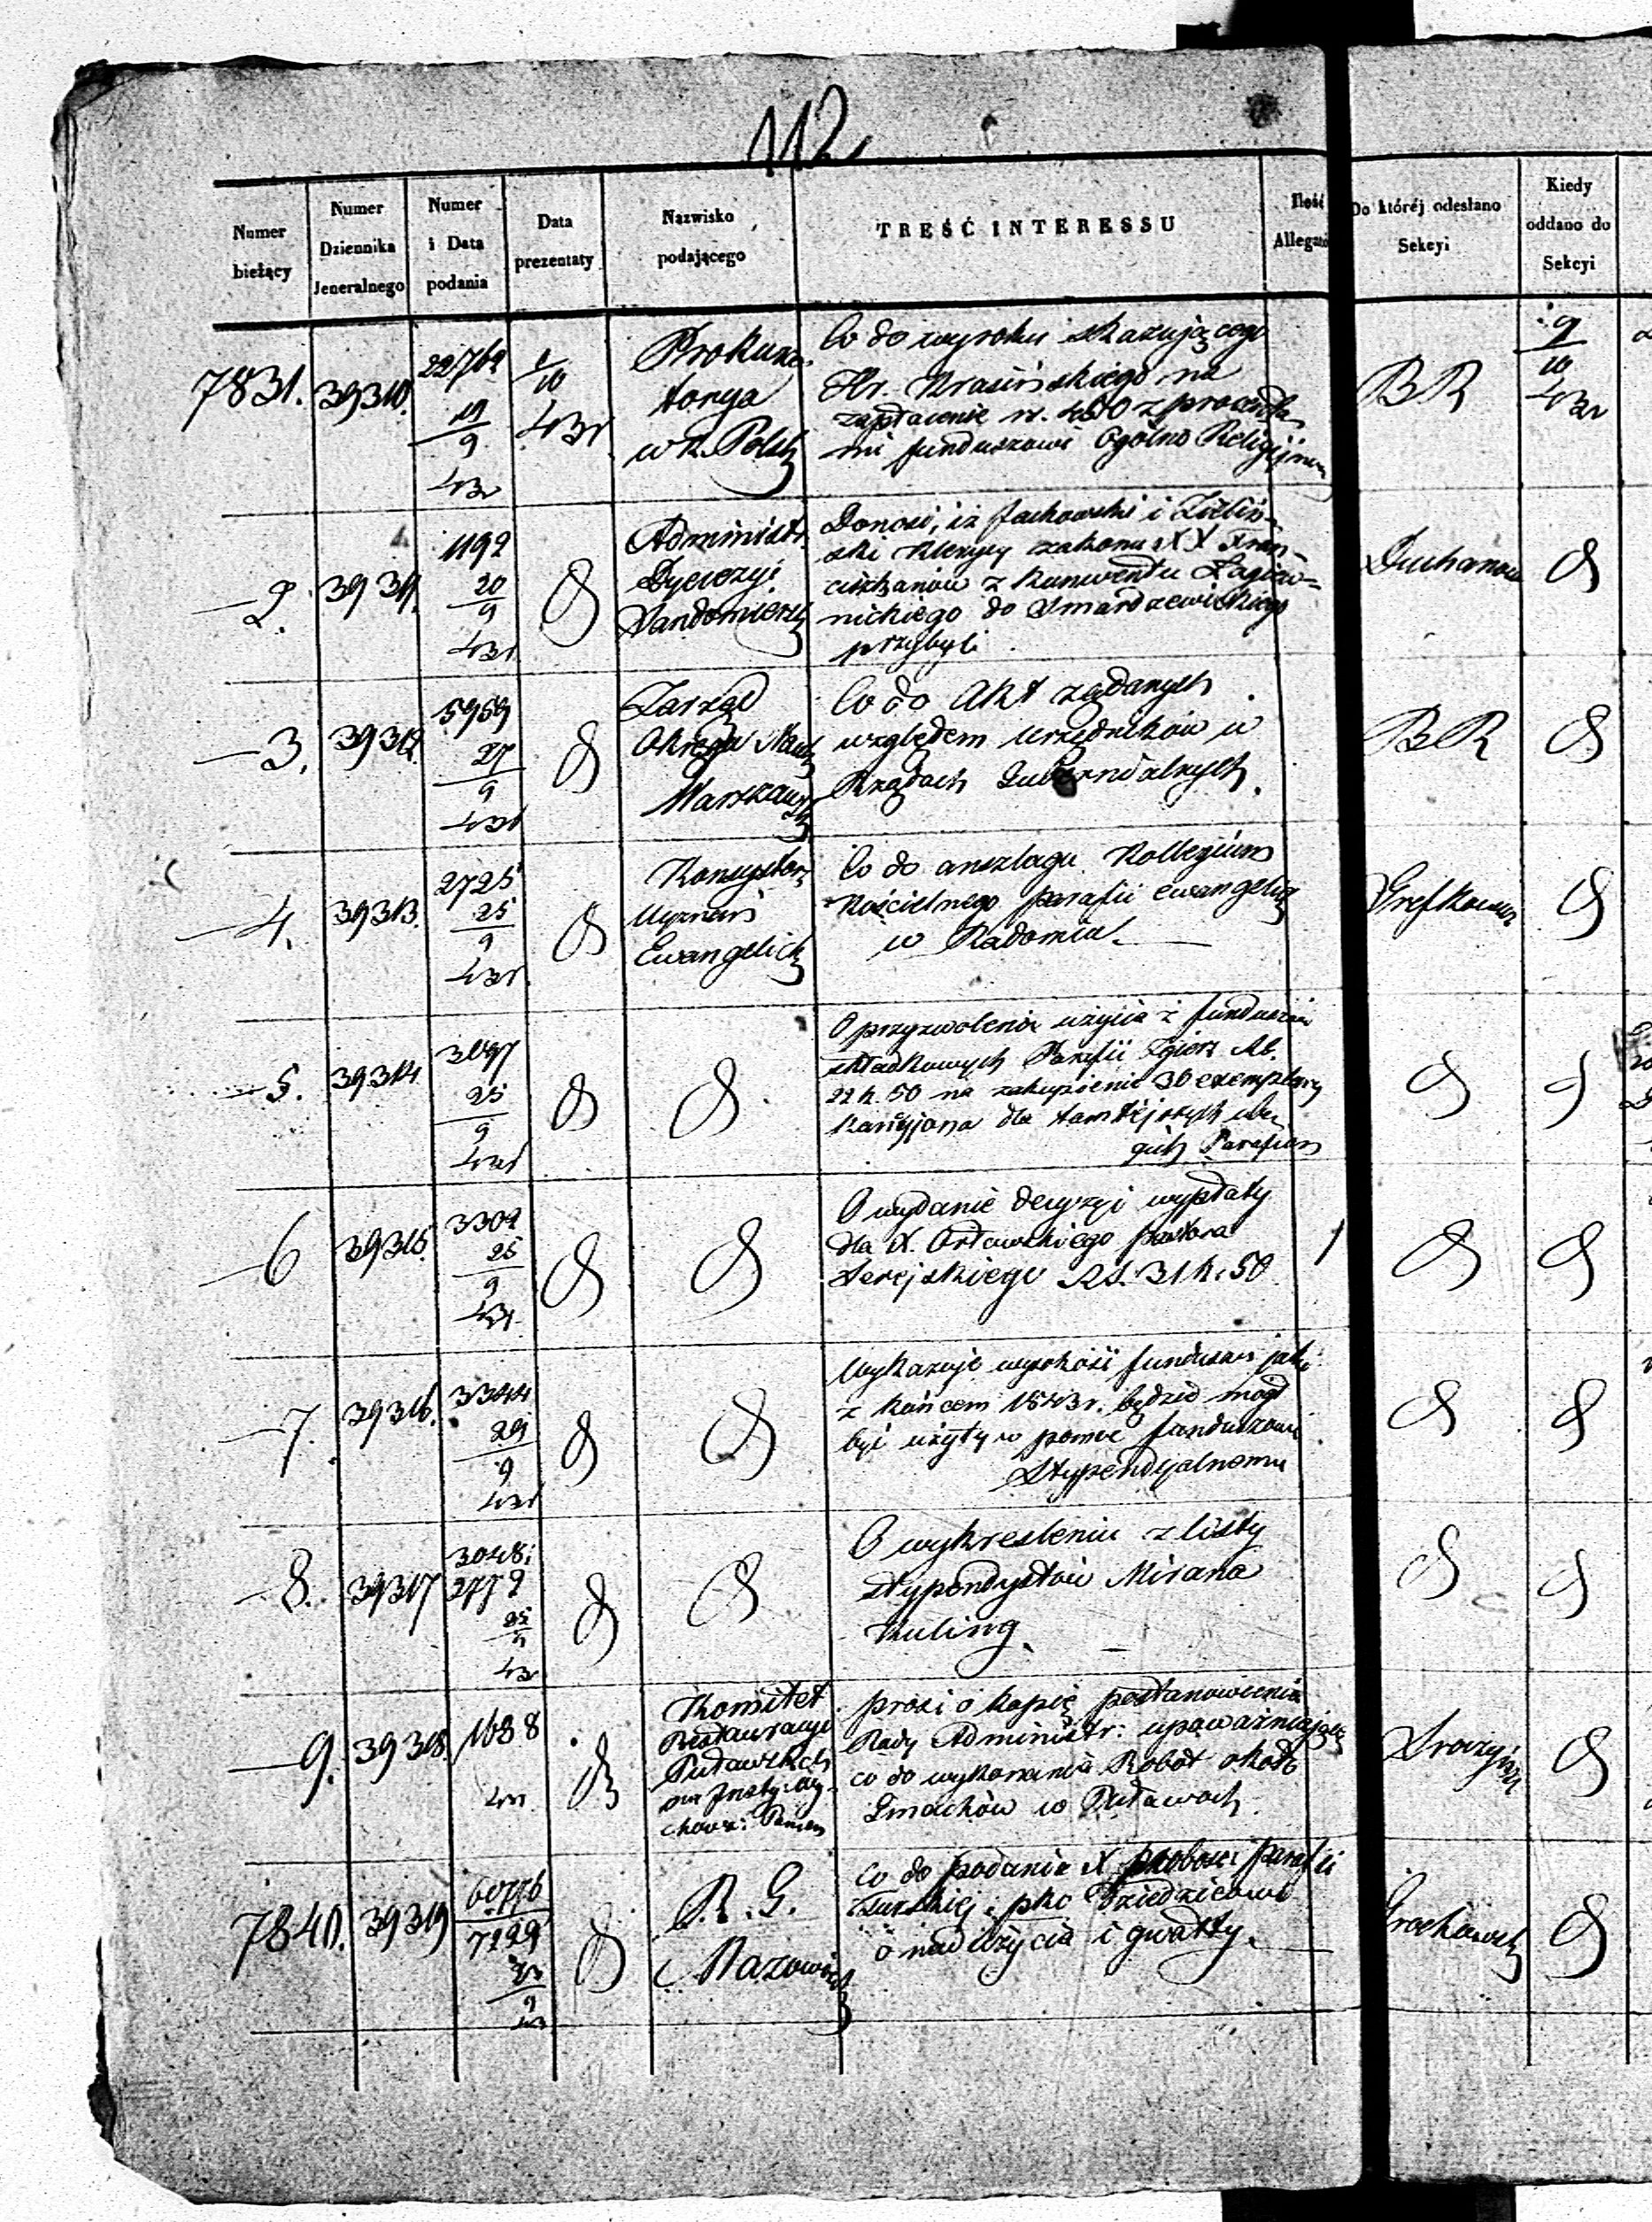 112
Numer bieżący
Numer Dziennika Jeneralnego
Numer i Data podania
Data prezentaty
Nazwisko podającego
TREŚĆ INTERESSU
Ilość Allegató
Do któréj odesłano Sekcyi
Kiedy oddano do Sekcyi
7831. 39310.
22762
19/9
43r
2/10
43r
Prokura-
torya
w K. Polsk
Co do wyroku skazującego
Hr. Krasińskiego na
zapłacenie rs. 450 z procenta
mi funduszowi Ogólno Religijnem
BR
9/10
43r
2. 39311.
1192
20/9
43r
Administr.
Dyecezyi
Sandomiersk
Donosi, iż Jackowski i Zieliń-
ski Klerycy zakonu XX Fran-
ciszkanów z Konwentu Łagiew-
nickiego do Smardzewickiego
przybyli.
Duchanow
3. 39312.
5959
27/9
43r
Zarząd
Okręgu Nauk
Warszaws
Co do Akt żądanych
względem urzędników w
Rządach Gubernialnych.
BR
4. 39313.
2725
25/9
43r
Konsystorz
Wyznań
Ewangelick
Co do anszlagu Kollegium
Kościelnego parafii ewangelick
w Radomiu.
5. 39314
3097
25/9
43r
O przyzwolenie użycia z funduszów
składkowych Parafii Zgierz Rb.
22 k. 50 na zakupienie 30 exemplarzy
Kancyjona dla tamtejszych ubo
gich Parafian
6 39315.
3302
25/9
43r
O wydanie decyzyi wypłaty
dla X. Orłowskiego pastora
Serejskiego RS. 31 k. 50
1
7. 39316.
3344
29/9
43r
Wykazuje wysokość funduszu jaki
z końcem 1843 r. będzie mógł
być użyty w pomoc funduszowi
Stypendyjalnemu
8. 39317
3048;
2779
25/9
43r
O wykreśleniu z listy
stypendystów Mirana
Kuling.
9. 39318.
1688
43r
Komitet
Restauracyi
Puławskich
Instyt: Wy-
chowa: Panien
prosi o kopię postanowienia
Rady Administr: upoważniając
co do wykonania Robot około
Gmachów w Puławach.
7840. 39319
60776
7299
23/9
43
R. G.
Mazowieck
Co do podania X. proboscz parafii
Turskiej: pko Dziedzicowi
o nadużycia i gwałty.
Grochowsk